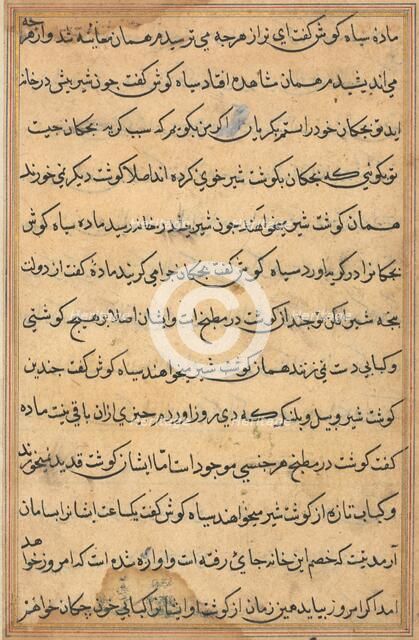 ماده سیاه کوش کفت ای نر از هرچه می ترسیدم همان معاینه شد و از هرچه
می اندیشیدم همان مشاهده افتاد سیاه کوش کفت چون شیر پیش در خانه
اید تو بچکان خود را ستم بکریان اکر من بکویم که سبب کریه بچکان چیست
تو بکوئی که بچکان بکوشت شیر خوی کرده اند اصلا کوشت دیکر نمی خورند
همان کوشت شیر میخواهند چون شیر پیش در خانه رسید ماده سیاه کوش
بچکانرا در کریه اورد سیاه کوش کفت بچکان چرا می کریند ماده کفت از دولت
پنجه شیر افکن تو چند از کوشت در مطبخ است و ایشان اصلا بر هیچ کوشتی
و کبابی دست نمی زنند همان کوشت شیر میخواهند سیاه کوش کفت چندین
کوشت شیر و پیل و پلنک که دی روز اورده چیزی ازان باقی نیست ماده
کفت کوشت در مطبخ هر جنسی موجود است اما ایشان کوشت قدید نمیخورند
و کبابی تازه از کوشت شیر میخواهند سیاه کوش کفت یکساعت ایشانرا بسامان
آر مدتیست که خصم این خانه جای رفته است و اوازه شده است که امروز خواهد
امد اکر امروز بیاید همین زمان از کوشت او ایشانرا کبابی خون چکان خواهم